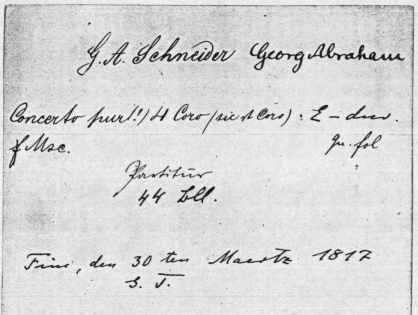 G. A. Schneider Georg Abraham
Concerto pur(!) 4 Coro (sic st Coro) : E-dur.
Msc. qu. fol
Partitur
44 Bll.
Fine, den 30 ten Maertz 1817
S. T.